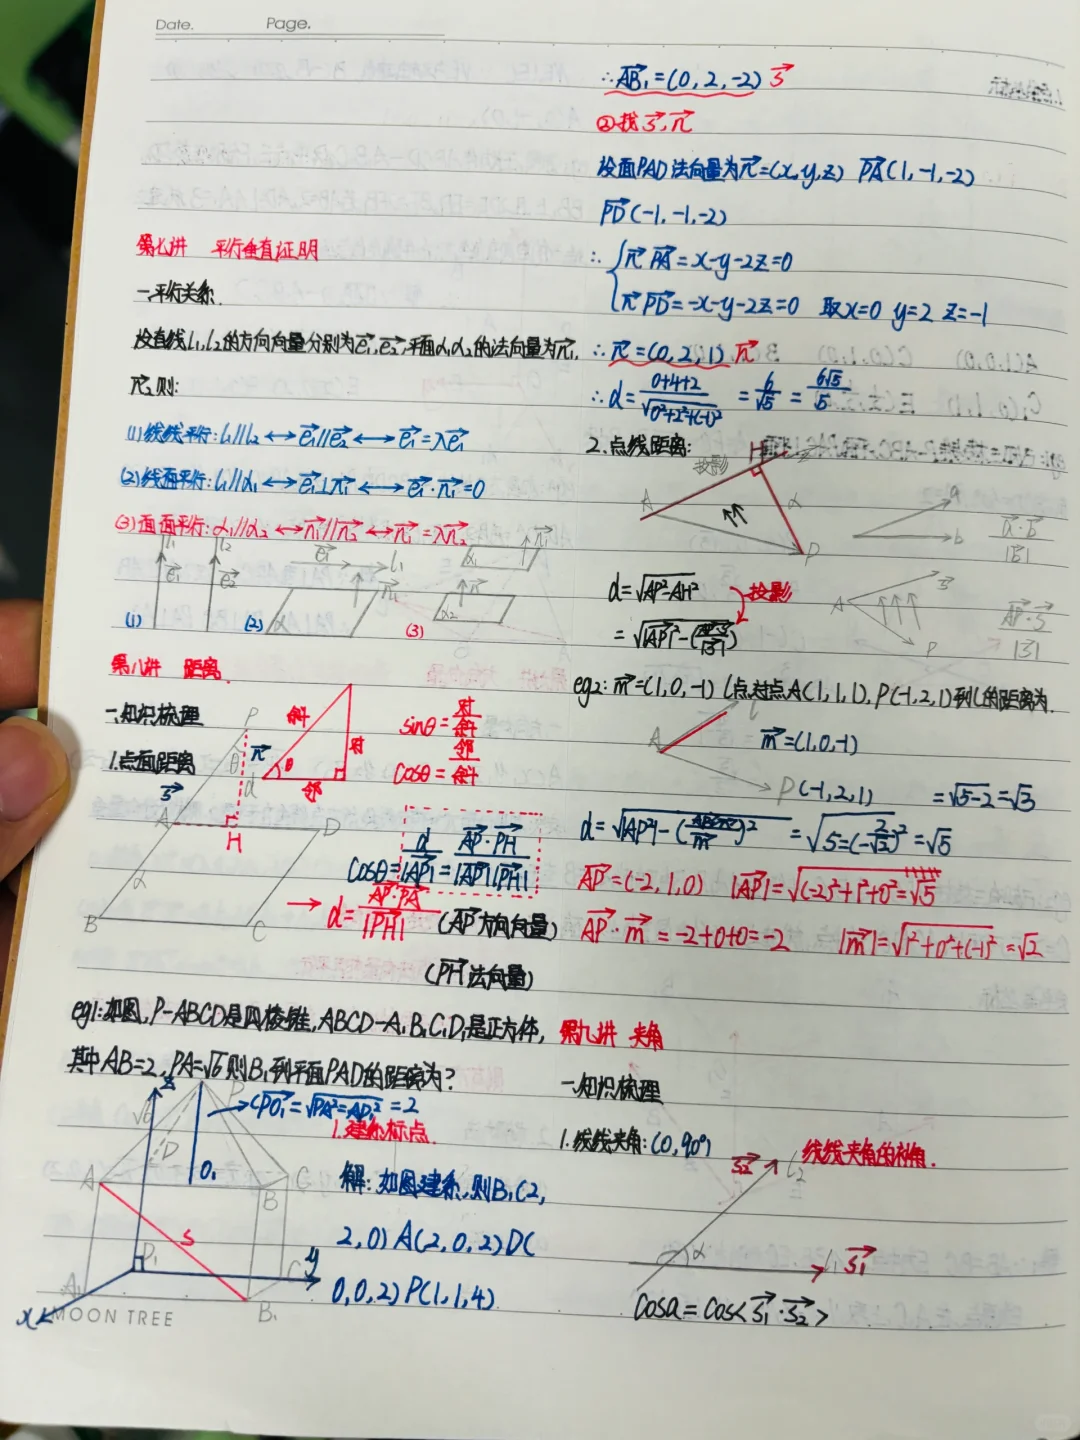 Date. Page.
第七讲 平行垂直证明
一.平行关系.
设直线l₁,l₂的方向向量分别为e₁,e₂,平面α₁α₂的法向量为n₁,
n₂,则:
(1)线线平行:l₁∥l₂↔e₁∥e₂↔e₁=λe₁
(2)线面平行:l₁∥α₁↔e₁⊥n₁↔e₁·n₁=0
(3)面面平行:α₁∥α₂↔n₁∥n₂↔n₁=λn₂
l₁ e₁ l₂ e₂ e₁ l₁ n₁ α α₁ n₁ α₂ n
(1) (2) (3)
第八讲 距离.
一.知识梳理
1.点面距离
P θ n d s A H D α B C
斜 对 邻 θ
sinθ=对/斜
cosθ=邻/斜
cosθ=d/|AP|=AP·PH/|AP||PH|
→ d=AP·PA/|PH| (AP方向向量)
(PH法向量)
eg1:如图,P-ABCD是四棱锥,ABCD-A₁B₁C₁D₁是正方体,
其中AB=2,PA=√6则B₁到平面PAD的距离为?
(PO₁=√PA²=AP₁²=2
1.建系标点
解:如图建系,则B₁(2,
2,0)A(2,0,2)D(
0,0,2)P(1,1,4)
z P √6 D O₁ A B C S D₁ y C A₁ B₁ x
MOON TREE
∴AB₁=(0,2,-2) s
②找s,n
设面PAD法向量为n=(x,y,z) PA(1,-1,-2)
PD(-1,-1,-2)
∴{n PA=x-y-2z=0
n PD=-x-y-2z=0 取x=0 y=2 z=-1
∴n=(0,2,1) n
∴d=0+4+2/√0²+2²+(-1)²=6/√5=6√5/5
2.点线距离:
投影 H A α P
a b a·b/|b|
d=√AP²-AH² 投影
=√|AP|²-(AP·s/|s|)
A s P AP·s/|s|
eg2:m=(1,0,-1) l点过点A(1,1,1),P(-1,2,1)到l的距离为.
A l m=(1,0,-1)
P(-1,2,1) =√5-2=√3
d=√|AP²|-( /m)²=√5=(-2/√2)²=√5
AP=(-2,1,0) |AP|=√(-2)²+1²+0²=√5
AP·m=-2+0+0=-2 |m|=√1²+0²+(-1)²=√2
第九讲 夹角
一.知识梳理
1.线线夹角:(0,90°)
线线夹角的补角.
s₂ l₂ α l₁ s₁
cosα=cos<s₁·s₂>